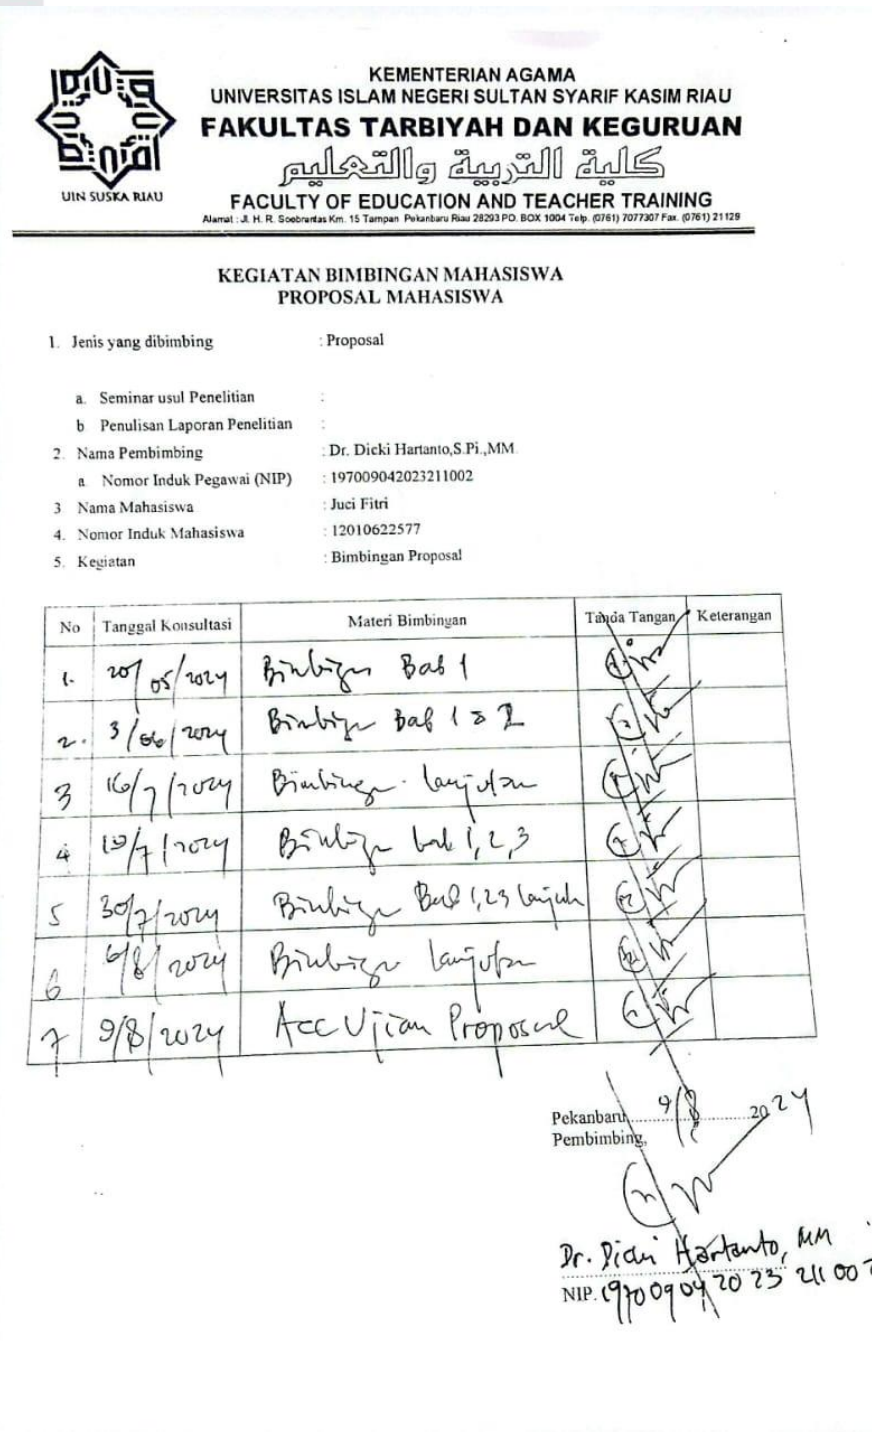 KEMENTERIAN AGAMA
UNIVERSITAS ISLAM NEGERI SULTAN SYARIF KASIM RIAU
FAKULTAS TARBIYAH DAN KEGURUAN
كلية التربية والتعليم
FACULTY OF EDUCATION AND TEACHER TRAINING
Alamat : Jl. H. R. Soebrantas Km. 15 Tampan Pekanbaru Riau 28293 PO. BOX 1004 Telp. (0761) 7077307 Fax. (0761) 21129
UIN SUSKA RIAU
KEGIATAN BIMBINGAN MAHASISWA
PROPOSAL MAHASISWA
1. Jenis yang dibimbing : Proposal
a. Seminar usul Penelitian :
b Penulisan Laporan Penelitian :
2. Nama Pembimbing : Dr. Dicki Hartanto,S.Pi.,MM
a Nomor Induk Pegawai (NIP) : 197009042023211002
3 Nama Mahasiswa : Juci Fitri
4. Nomor Induk Mahasiswa : 12010622577
5. Kegiatan : Bimbingan Proposal
No Tanggal Konsultasi Materi Bimbingan Tanda Tangan Keterangan
1. 20/05/2024 Bimbingan Bab 1
2. 3/06/2024 Bimbingan Bab 1 & 2
3 16/7/2024 Bimbingan lanjutan
4 /7/2024 Bimbingan bab 1, 2, 3
5 30/7/2024 Bimbingan Bab 1,23 lanjut
6 6/8/2024 Bimbingan lanjutan
7 9/8/2024 Acc Ujian Proposal
Pekanbaru, 9/8 2024
Pembimbing,
Dr. Dicki Hartanto, MM
NIP. 19700904 2023 211 002